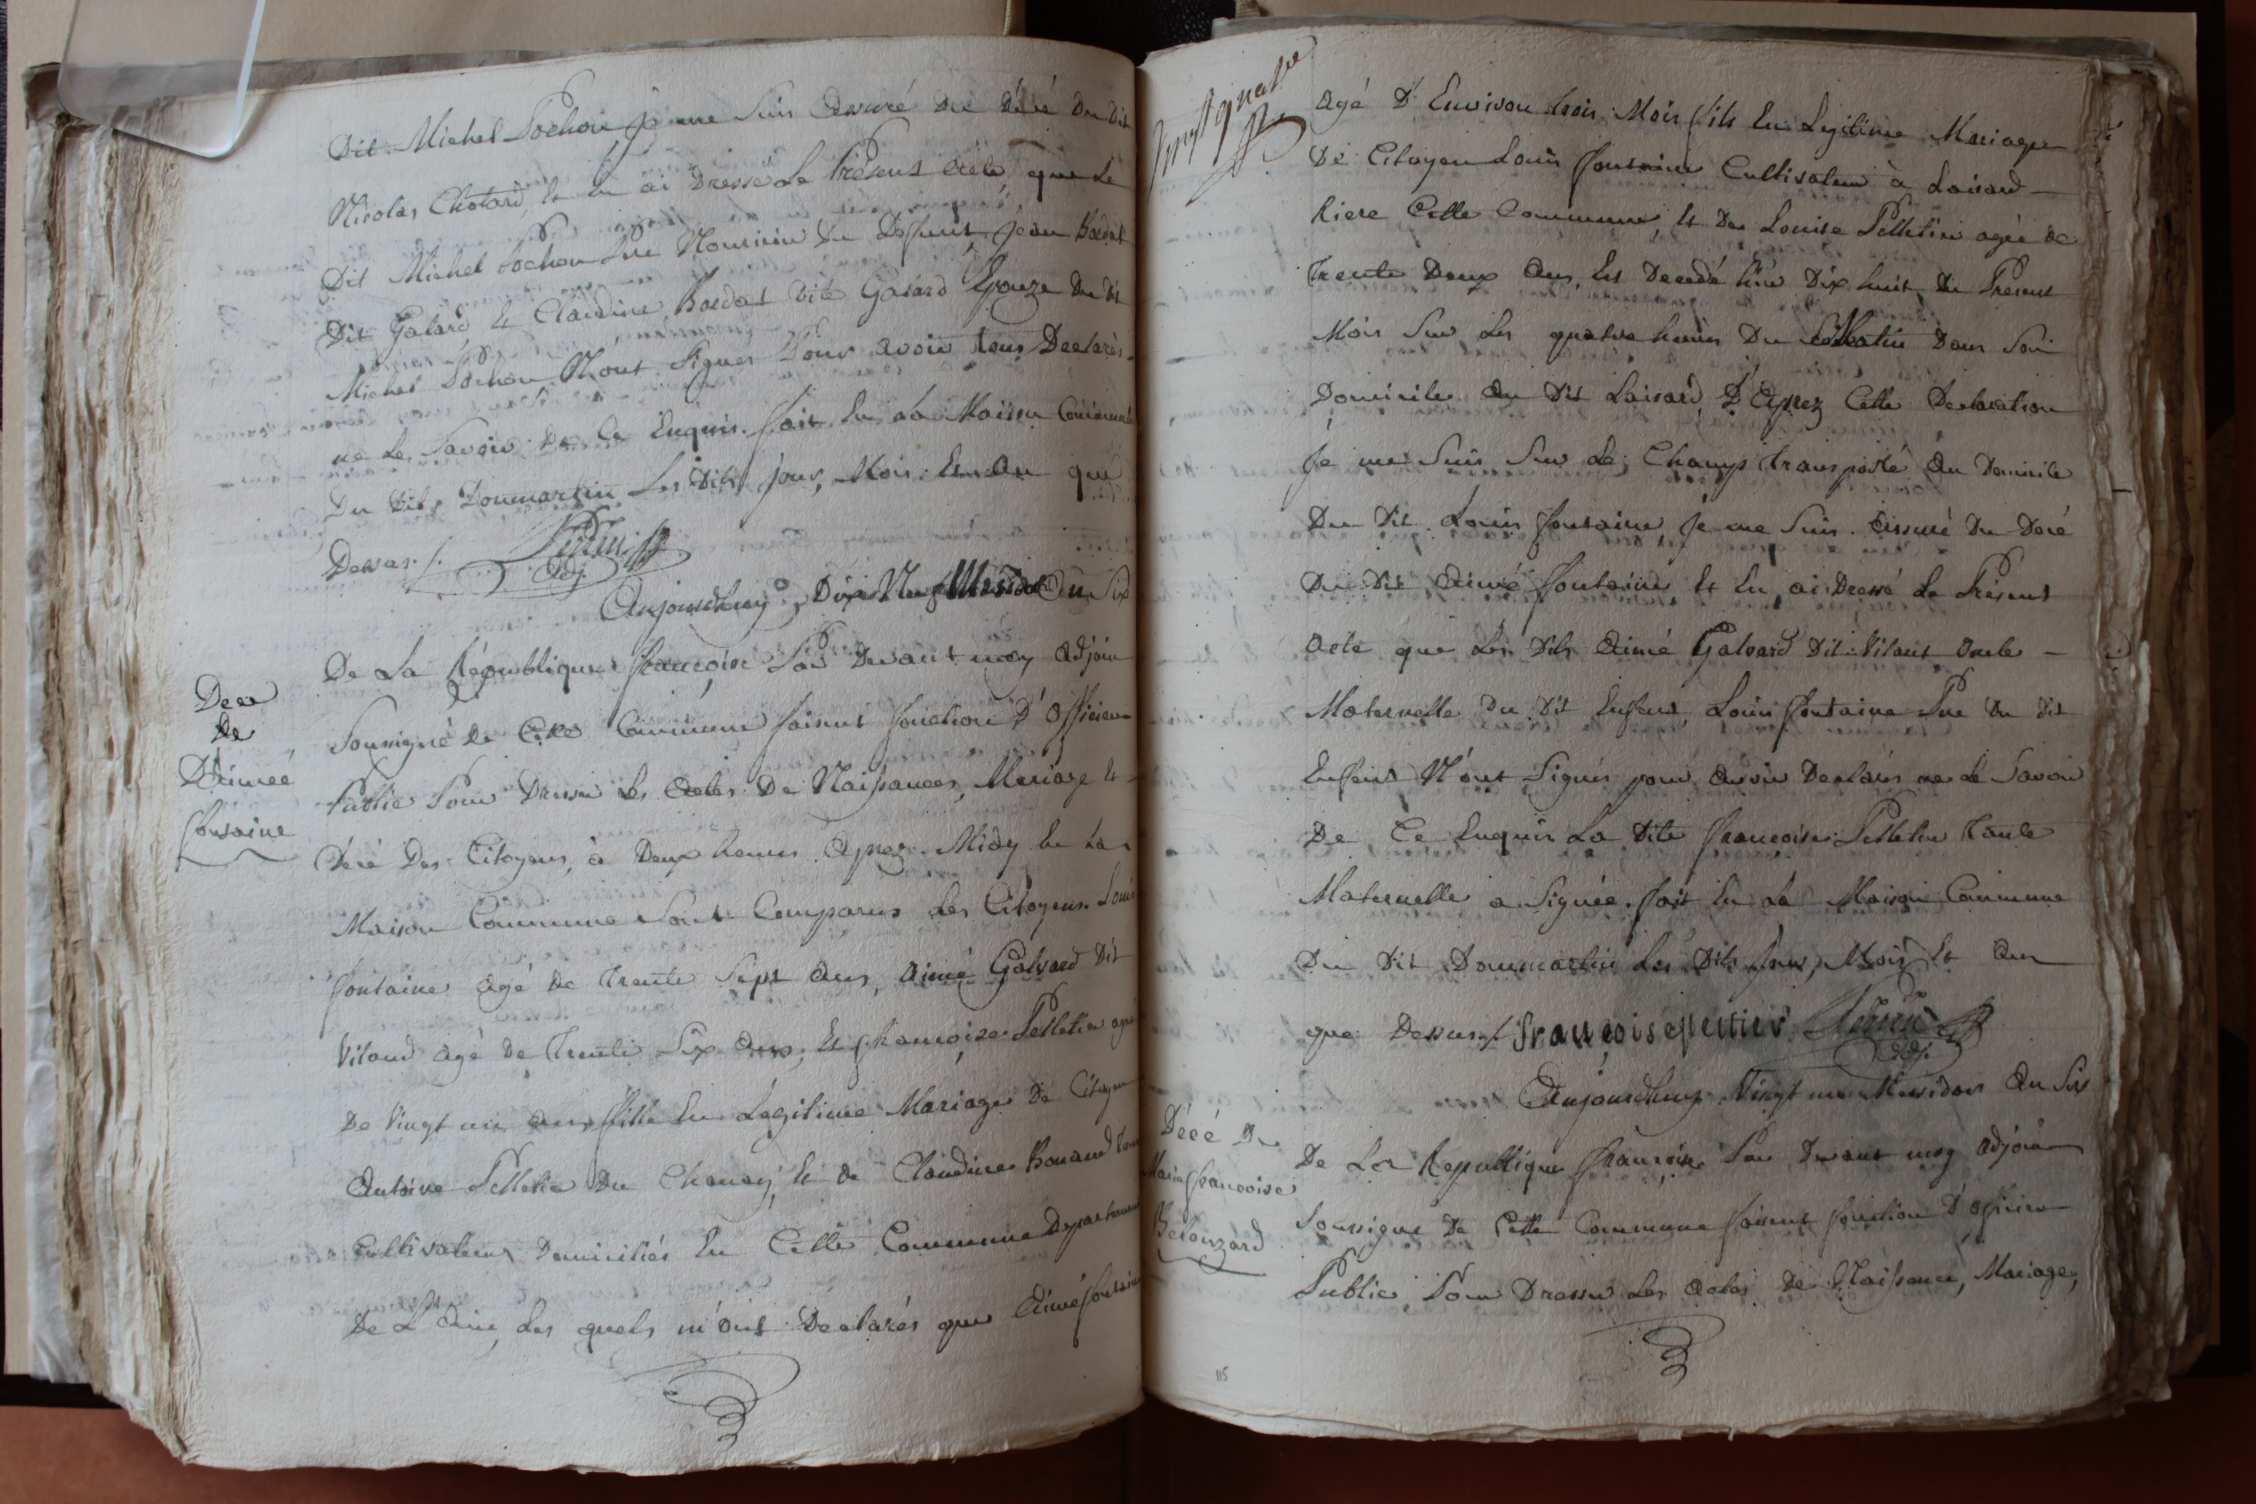 Dit Michel Pochon Je me suis assuré du décé du dit
Nicolas Chatard, Et En ai Dressé Le Présent acte que Le
Dit Michel Pochon Pere Nouricier Du Defunt, Jean Bordat
Dit Galard Et Claudine Bordat dite Galard Epouze du dit
Michel Pochon N'ont Signer Pour avoir tous Declarés
ne Le Savoir De Ce Enquis. fait En La Maison Commune
Du dit Dommartin Les Dits jour, Mois Et An que
Dessus ./.
adj.
Aujourdhuy Dix Neuf Messidor An Six
De La République françoise Par Devant moy adjoin
Soussigné De Cette Commune faisant fonction D'Officier
Public Pour Dresser Les Actes De Naissances, Mariage Et
Décé Des Citoyens, à Deux heures Aprez Midy En La
Maison Commune Sont Comparus Les Citoyens Louis
fontaine agé De Trente Sept Ans, Aimé Galvard Dit
Vitaud agé De Trente Six Ans, Et françoise Pelletier agée
De Vingt un ans fille En Légitime Mariage De Citoyen
Antoine Pelletier Du Chanay, Et de Claudine Bonand tous
Cultivateurs Domiciliés En Cette Commune Departement
De L'Ain, Les quels m'ont Déclarés que Aimé fontaine
Décé
De
D'aimeé
fontaine
Vingt quatre
agé D'Environ trois Mois fils En Legitime Mariage
De Citoyen Louis fontaine Cultivateur à Laisard
Riere Cette Commune, Et De Louise Pelletier agée de
Trente Deux Ans, Est Decedé hier Dix huit Du Présent
Mois Sur Les quatre heures Du Matin Dans Son
Domicile Au Dit Laisard, D'Aprez Cette Declaration
Je me Suis Sur Le Champ Transporté Au Domicile
Du Dit Louis fontaine, Je me Suis assuré Du Décé
Du Dit Aimé fontaine Et En ai Dressé Le Présent
acte que Les Dits Aimé Galvard Dit Vitaut Oncle
Maternelle Du Dit Enfant, Louis fontaine Pere Du Dit
Enfant N'ont Signés pour Avoir Declarés ne Le Savoir
De Ce Enquis La Dite françoise Pelletier Tante
Maternelle a Signée. fait En La Maison Commune
Du Dit Dommartin Les Dits Jour, Mois Et An
que Dessus ./. françoise peltier
adj.
Aujourdhuy Vingt un Messidor An Six
De La Republique françoise Par Devant moy adjoin
Soussigné De Cette Commune faisant fonction D'Officier
Public Pour Dresser Les Actes De Naissance, Mariage,
Décé De
Marie françoise
Berouzard
115